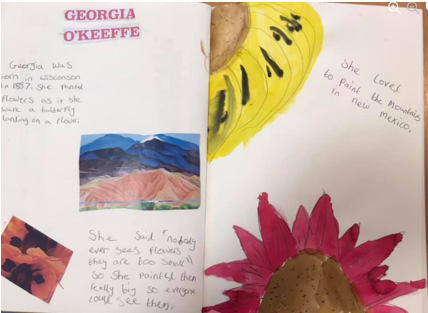 GEORGIA
O'KEEFFE
Georgia was
born in wisconson
in 1887. She painted
flowers as if she
were a butterfly
landing on a flower.
She said "nobody
ever sees flowers
they are too small"
so she painted them
really big so everyone
could see them.
She loved
to paint the mountains
in new mexico.